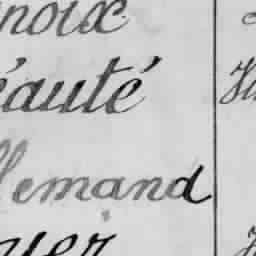 noix
éauté
llemand
yer